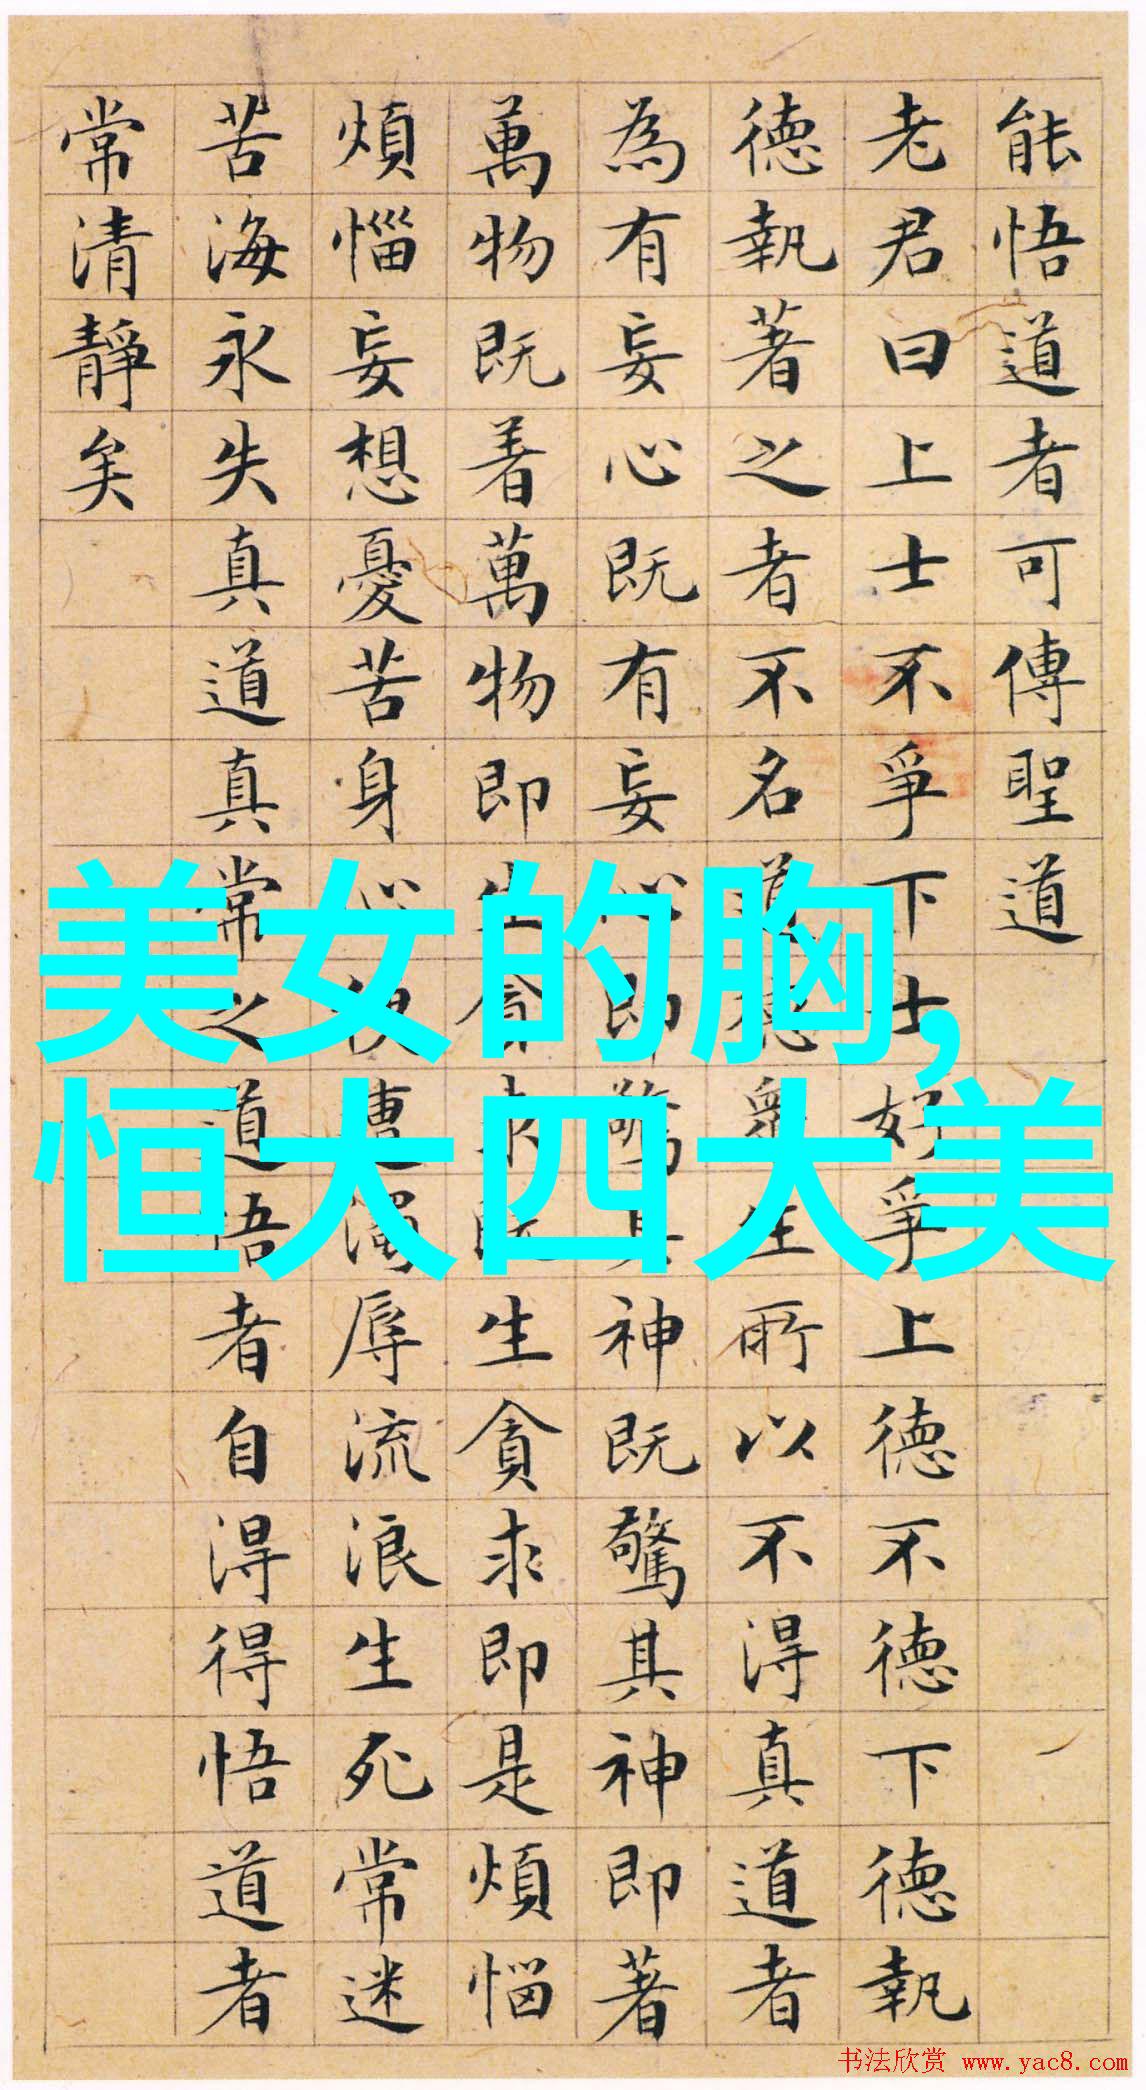 能悟道者可傳聖道
老君曰上士不爭下士好爭上德不德下德執
德執著之者不名道德眾生所以不得真道者
為有妄心既有妄心即驚其神既驚其神即著
萬物既着萬物即生貪求既生貪求即是煩惱
煩惱妄想憂苦身心便遭濁辱流浪生死常迷
苦海永失真道真常之道悟者自得得悟道者
常清靜矣
美女的胸,
恒大四大美
书法欣赏 www.yac8.com